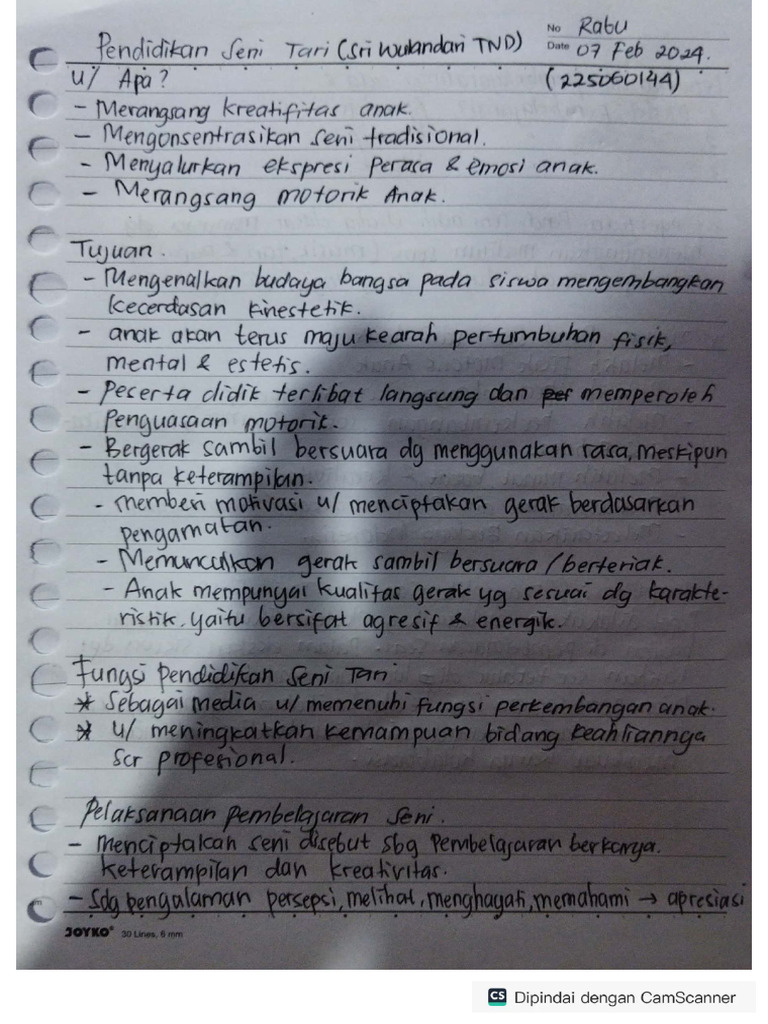 No Rabu
Pendidikan Seni Tari (Sri Wulandari TND) Date 07 Feb 2024.
u/ Apa? (225060144)
- Merangsang kreatifitas anak.
- Mengonsentrasikan seni tradisional.
- Menyalurkan ekspresi perasa & emosi anak.
- Merangsang motorik Anak.
Tujuan.
- Mengenalkan budaya bangsa pada siswa mengembangkan
kecerdasan kinestetik.
- anak akan terus maju kearah pertumbuhan fisik,
mental & estetis.
- Peserta didik terlibat langsung dan per memperoleh
penguasaan motorik.
- Bergerak sambil bersuara dg menggunakan rasa, meskipun
tanpa keterampilan.
- memberi motivasi u/ menciptakan gerak berdasarkan
pengamatan.
- Memunculkan gerak sambil bersuara / berteriak.
- Anak mempunyai kualitas gerak yg sesuai dg karakte-
ristik, yaitu bersifat agresif & energik.
Fungsi pendidikan Seni Tari
* Sebagai media u/ memenuhi fungsi perkembangan anak.
* u/ meningkatkan kemampuan bidang keahliannya
scr profesional.
Pelaksanaan pembelajaran seni.
- menciptakan seni disebut sbg pembelajaran berkarya.
keterampilan dan kreativitas.
- Sdg pengalaman persepsi, melihat, menghayati, memahami → apresiasi
JOYKO® 30 Lines, 6 mm
CS Dipindai dengan CamScanner